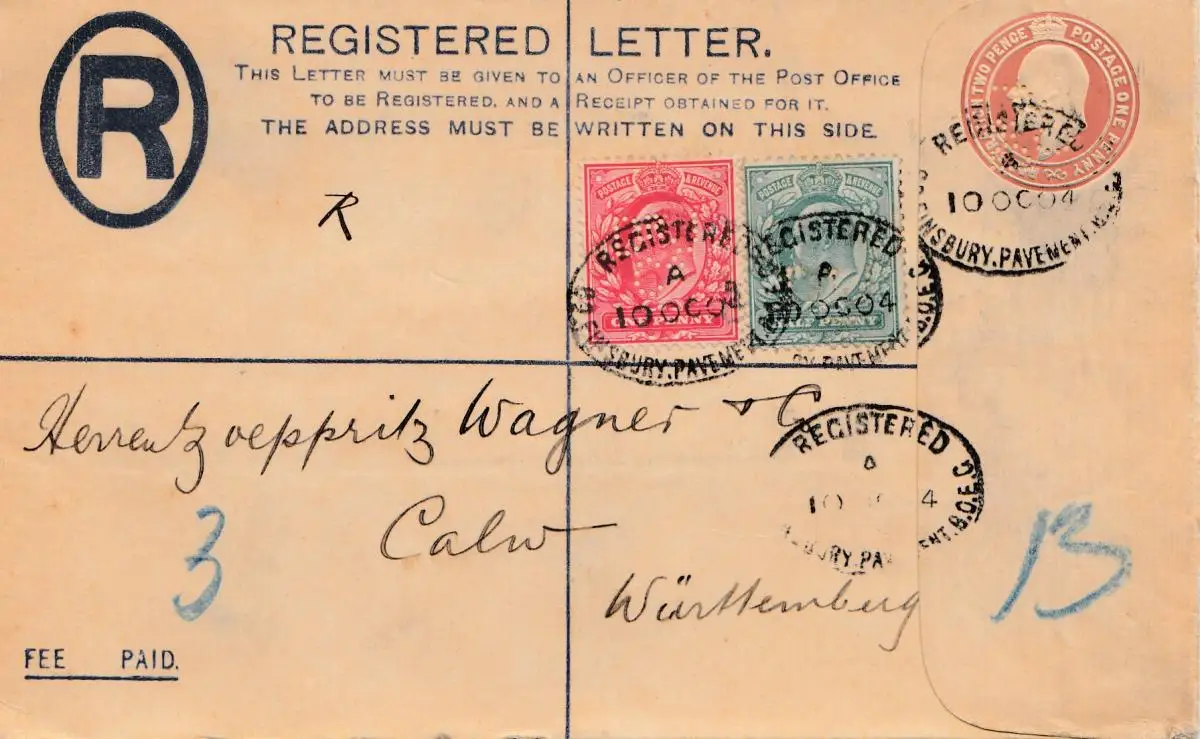 R
REGISTERED LETTER.
THIS LETTER MUST BE GIVEN TO AN OFFICER OF THE POST OFFICE
TO BE REGISTERED, AND A RECEIPT OBTAINED FOR IT.
THE ADDRESS MUST BE WRITTEN ON THIS SIDE.
TWO PENCE POSTAGE ONE PENNY
REGISTERED
10 OC 04
FINSBURY.PAVEMENT.B.O.
R
POSTAGE & REVENUE
ONE PENNY
REGISTERED
A
10 OC 0
FINSBURY.PAVEMENT
POSTAGE & REVENUE
HALF PENNY
REGISTERED
10 OC 04
RY.PAVEMENT.B.O.E.C
Herren Zoeppritz Wagner & C
REGISTERED
A
10 4
SBURY.PA ENT.B.O.E.C
Calw
Württemberg
3
B
FEE PAID.